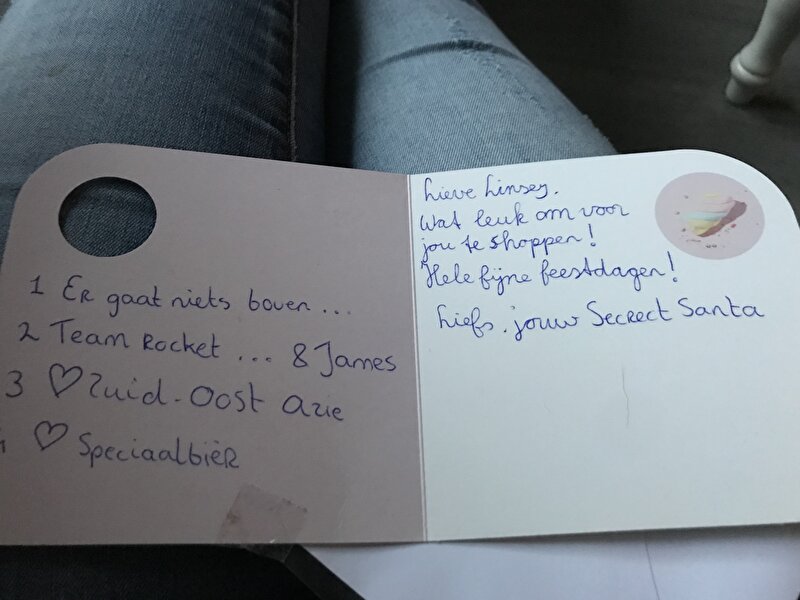 1 Er gaat niets boven ...
2 Team Rocket ... & James
3 ♡ Zuid-Oost Azie
♡ Speciaalbier
Lieve Linsey.
Wat leuk om voor
jou te shoppen!
Hele fijne feestdagen!
Liefs. jouw Secrect Santa